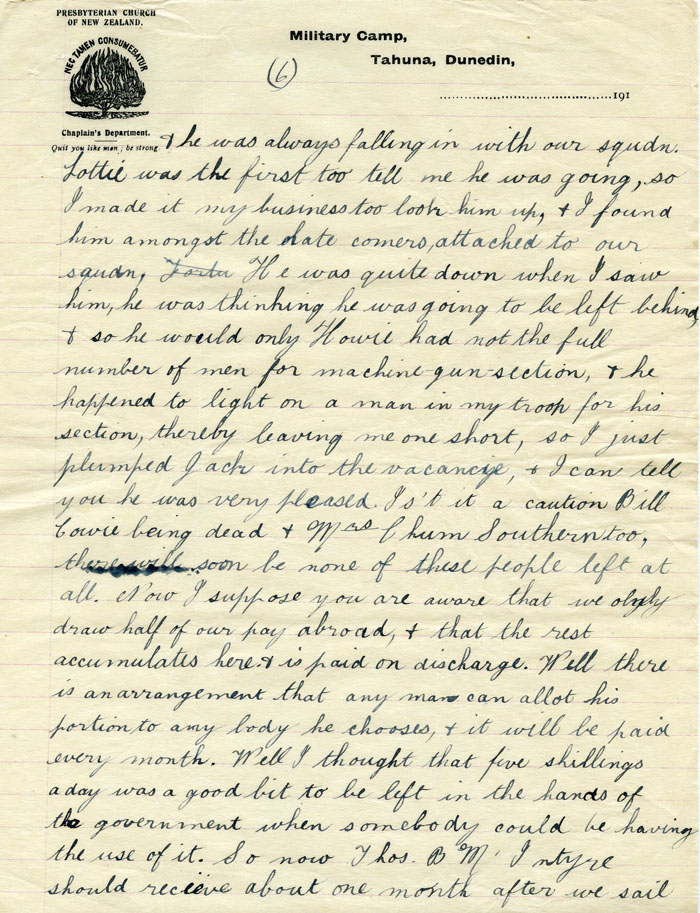 PRESBYTERIAN CHURCH
OF NEW ZEALAND.
NEC TAMEN CONSUMEBATUR
Chaplain's Department.
Quit you like men; be strong
Military Camp,
Tahuna, Dunedin,
191
(6)
& he was always falling in with our squdn.
Lottie was the first too tell me he was going, so
I made it my business too look him up, & I found
him amongst the late comers, attached to our
squdn, He was quite down when I saw
him, he was thinking he was going to be left behind,
& so he would only Howie had not the full
number of men for machine-gun-section, & he
happened to light on a man in my troop for his
section, thereby leaving me one short, so I just
plumped Jack into the vacancie, & I can tell
you he was very pleased. Is't it a caution Bill
Cowie being dead & Mrs Chum Southern too,
there will soon be none of these people left at
all. Now I suppose you are aware that we only
draw half of our pay abroad, & that the rest
accumulates here & is paid on discharge. Well there
is an arrangement that any man can allot his
portion to any body he chooses, & it will be paid
every month. Well I thought that five shillings
a day was a good bit to be left in the hands of
the government when somebody could be having
the use of it. So now Thos. B Mc Intyre
should recieve about one month after we sail